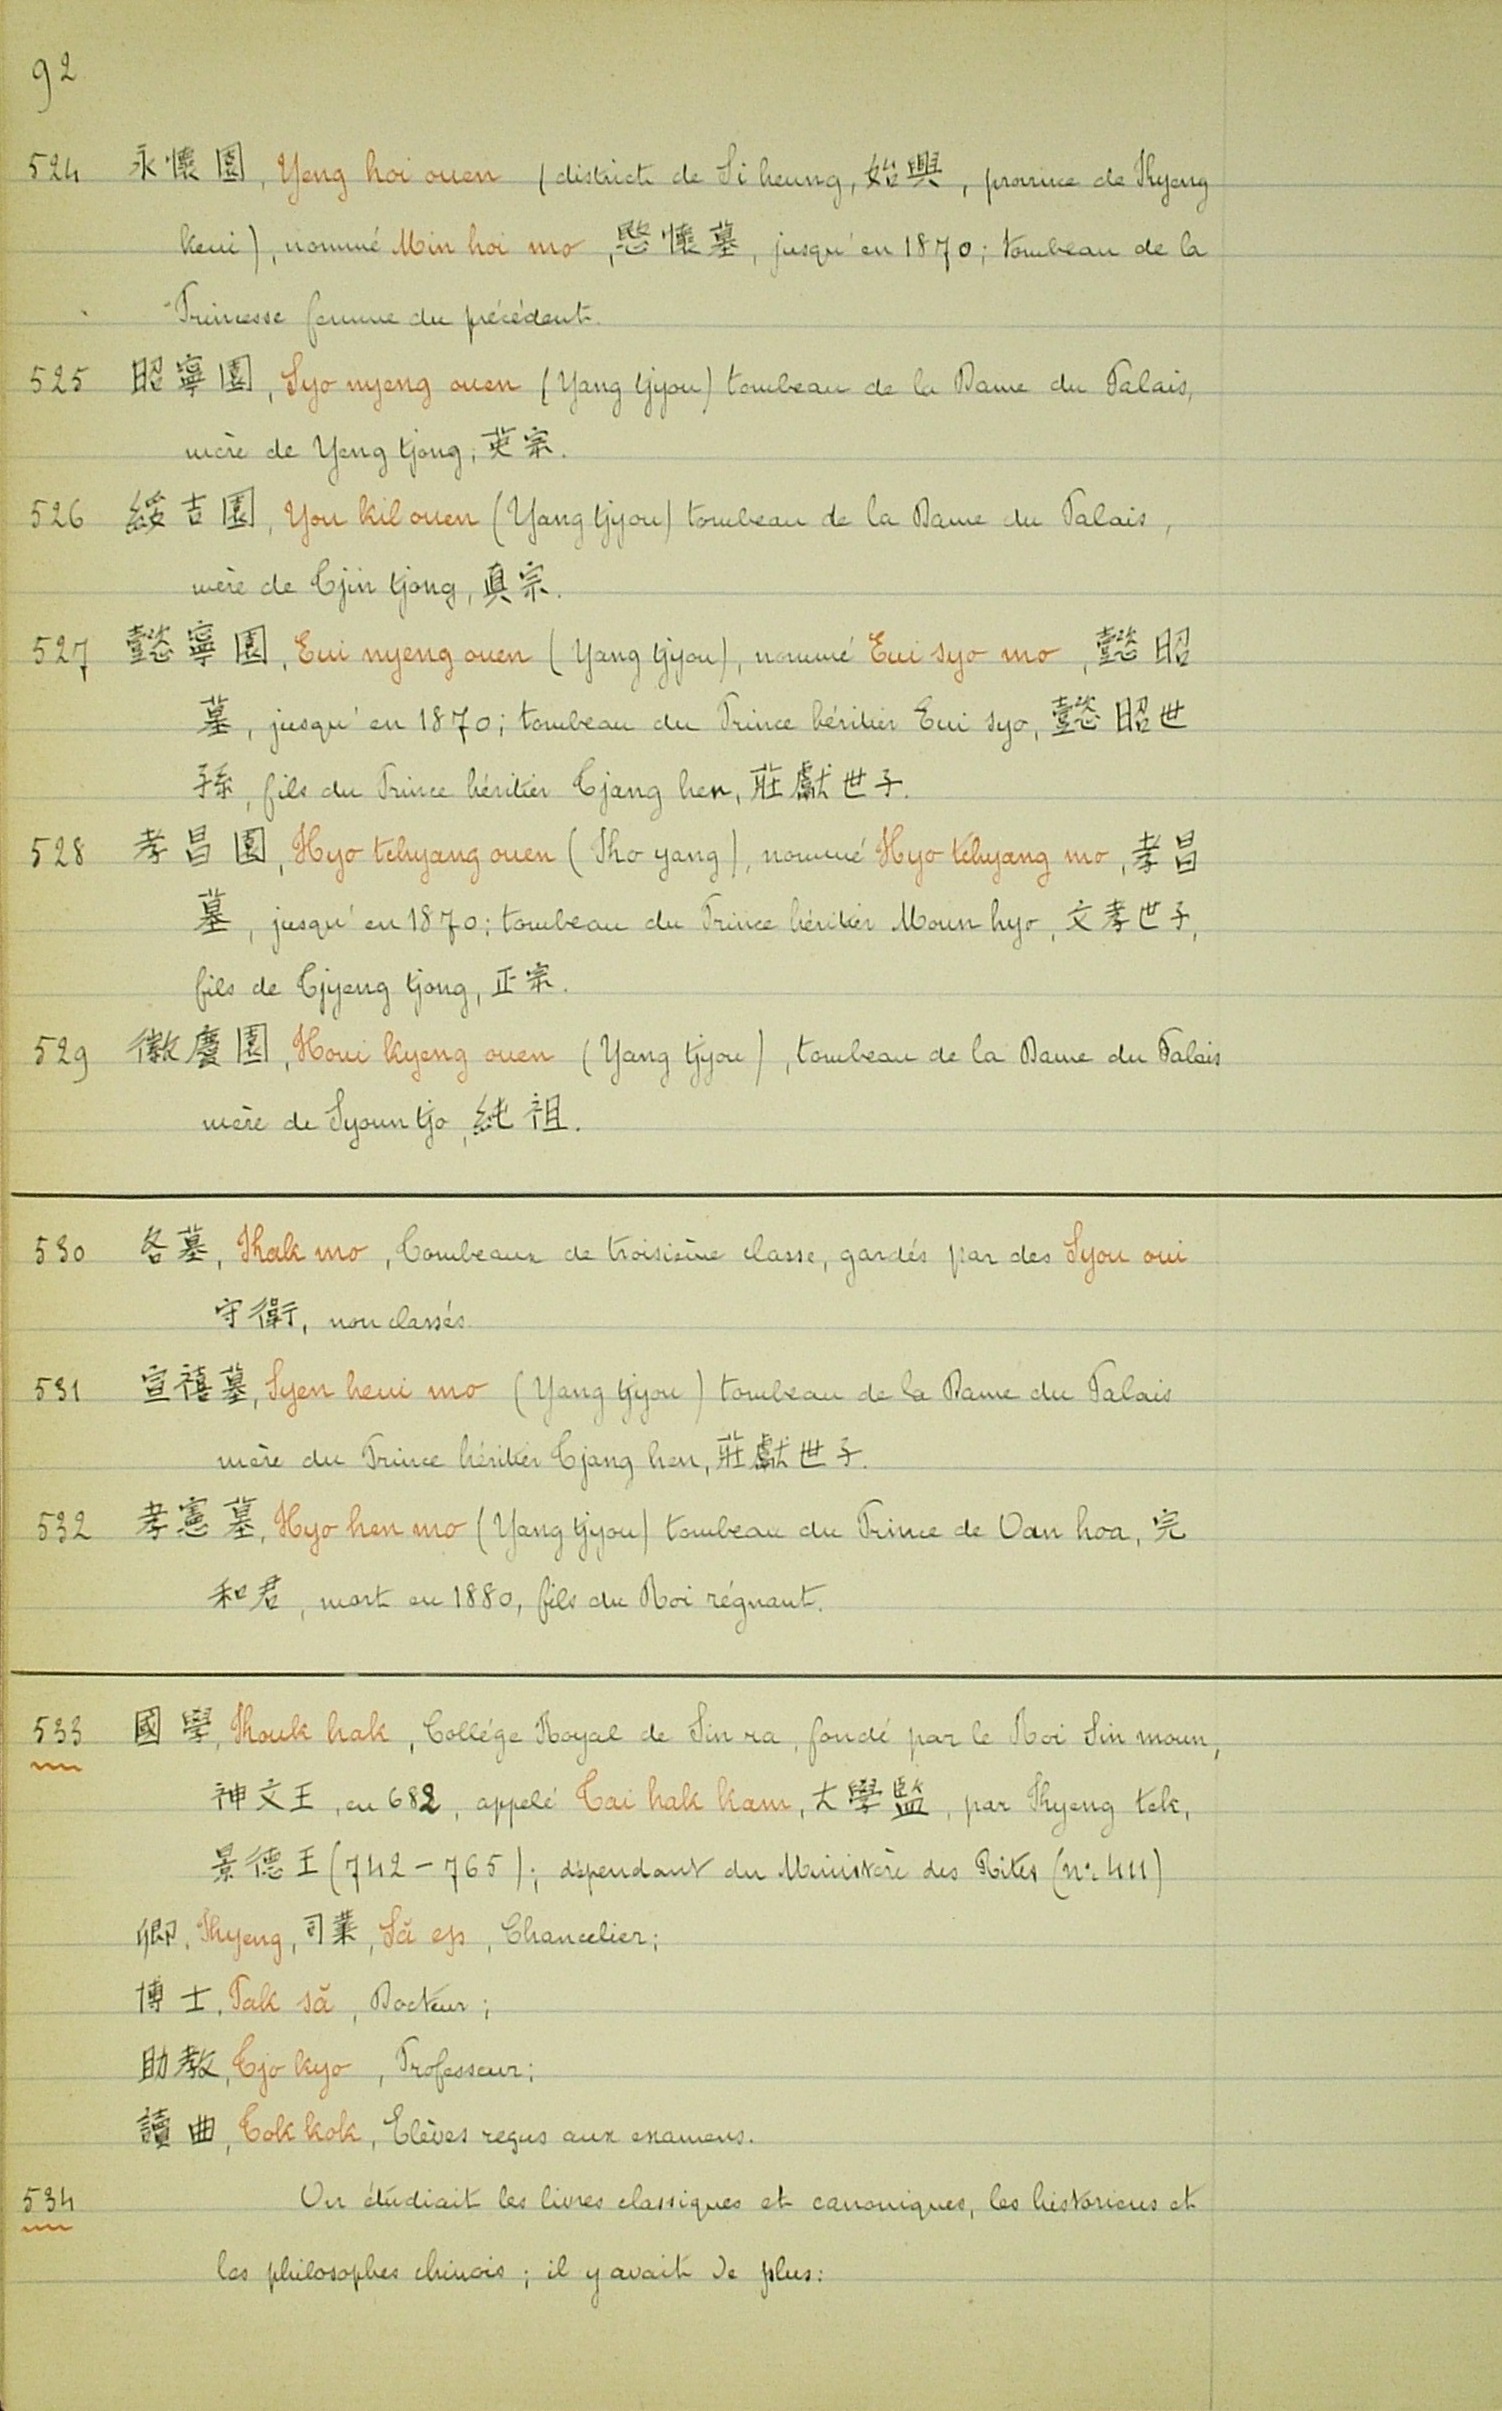 92
524 永懷園, Yeng hoi ouen (district de Si heung, 始興, province de Kyeng
keui), nommé Min hoi mo, 愍懷墓, jusqu'en 1870; tombeau de la
Princesse femme du précédent.
525 昭寧園, Syo nyeng ouen (Yang tjyou) tombeau de la Dame du Palais,
mère de Yeng tjong, 英宗.
526 綏吉園, You kil ouen (Yang tjyou) tombeau de la Dame du Palais,
mère de Tjin tjong, 真宗.
527 懿寧園, Eui nyeng ouen (Yang tjyou), nommé Eui syo mo, 懿昭
墓, jusqu'en 1870; tombeau du Prince héritier Eui syo, 懿昭世
孫, fils du Prince héritier Tjang hen, 莊獻世子.
528 孝昌園, Hyo tchyang ouen (Ko yang), nommé Hyo tchyang mo, 孝昌
墓, jusqu'en 1870; tombeau du Prince héritier Moun hyo, 文孝世子,
fils de Tjyeng tjong, 正宗.
529 徽慶園, Houi kyeng ouen (Yang tjyou), tombeau de la Dame du Palais
mère de Syoun tjo, 純祖.
530 各墓, Kak mo, Tombeaux de troisième classe, gardés par des Syou oui
守衛, non classés.
531 宣禧墓, Syen heui mo (Yang tjyou) tombeau de la Dame du Palais
mère du Prince héritier Tjang hen, 莊獻世子.
532 孝憲墓, Hyo hen mo (Yang tjyou) tombeau du Prince de Oan hoa, 完
和君, mort en 1880, fils du Roi régnant.
533 國學, Kouk hak, Collége Royal de Sin ra, fondé par le Roi Sin moun,
神文王, en 682, appelé Tai hak kam, 大學監, par Kyeng tek,
景德王 (742-765); dépendant du Ministère des Rites (nº 411)
卿, Kyeng, 司業, Să ep, Chancelier;
博士, Pak să, Docteur;
助教, Tjo kyo, Professeur;
讀曲, Tok kok, Elèves reçus aux examens.
534 On étudiait les livres classiques et canoniques, les historiens et
les philosophes chinois; il y avait de plus: